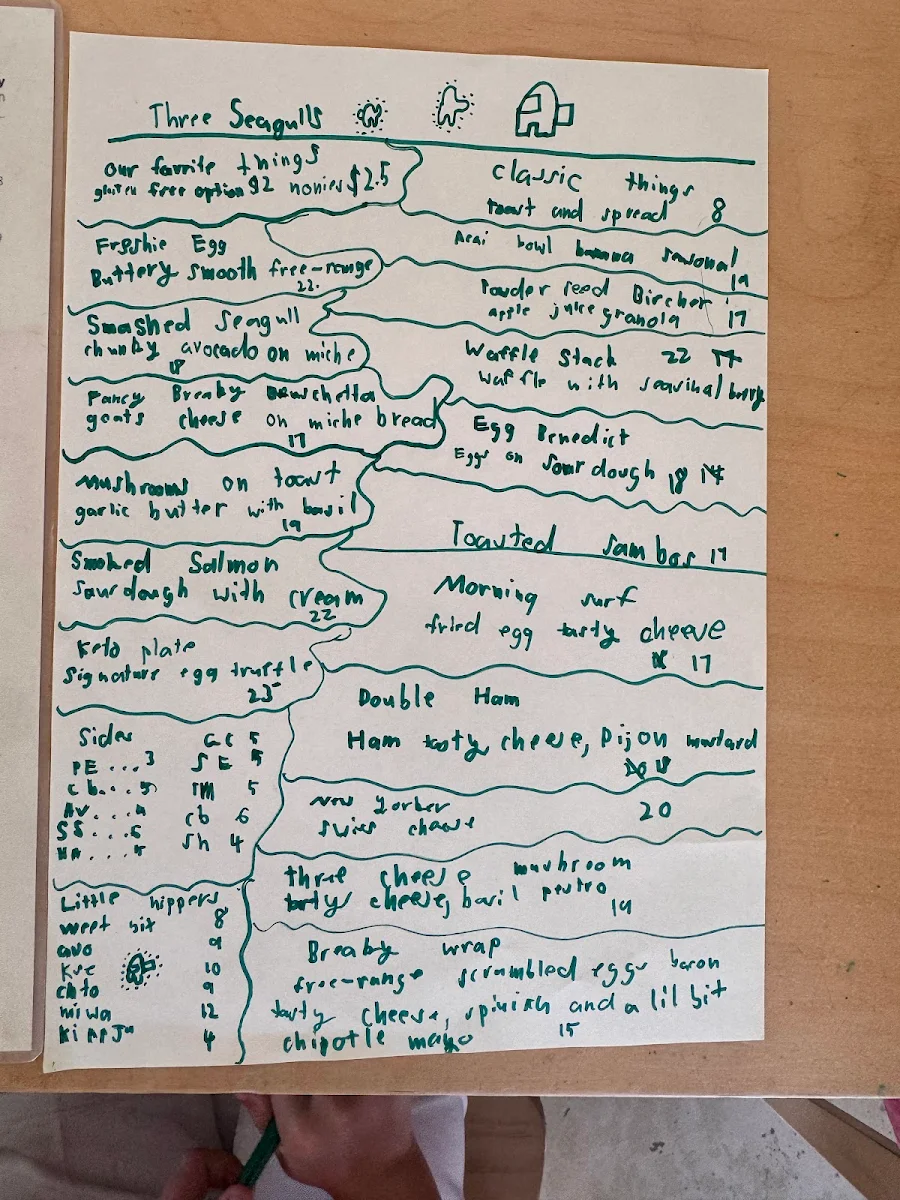 Three Seagulls
Our favrite things
gluten free option $2 nonies $2.5
Freshie Egg
Buttery smooth free-range
22.
Smashed Seagull
chunky avocado on miche
18
Fancy Breaky
goats cheese on miche bread
17
Mushrooms on toast
garlic butter with basil
19
Smoked Salmon
Sourdough with cream
22
Keto plate
Signature egg truffle
23
Sides
PE ... 3
cb ... 5
AV ... 4
SS ... 6
HA ... 5
GC 5
SE 5
TM 5
cb 6
Sh 4
Little nippers
weet bit 8
avo 9
Kse 10
chto 9
miwa 12
Kippju 4
classic things
toast and spread 8
Acai bowl banana seasonal
19
Powder seed Bircher
apple juice granola 17
Waffle Stack 22
waffle with seasinal berry
Egg Benedict
Eggs on sourdough 18
Toasted sambos 17
Morning surf
fried egg tasty cheese
17
Double Ham
Ham tasty cheese, Dijon mustard
18
New Yorker 20
swies chaese
three cheese mushroom
tasty cheese, basil pestro
19
Breaky wrap
free-range scrambled eggs bacon
tasty cheese, spinish and a lil bit
chipotle mayo 15